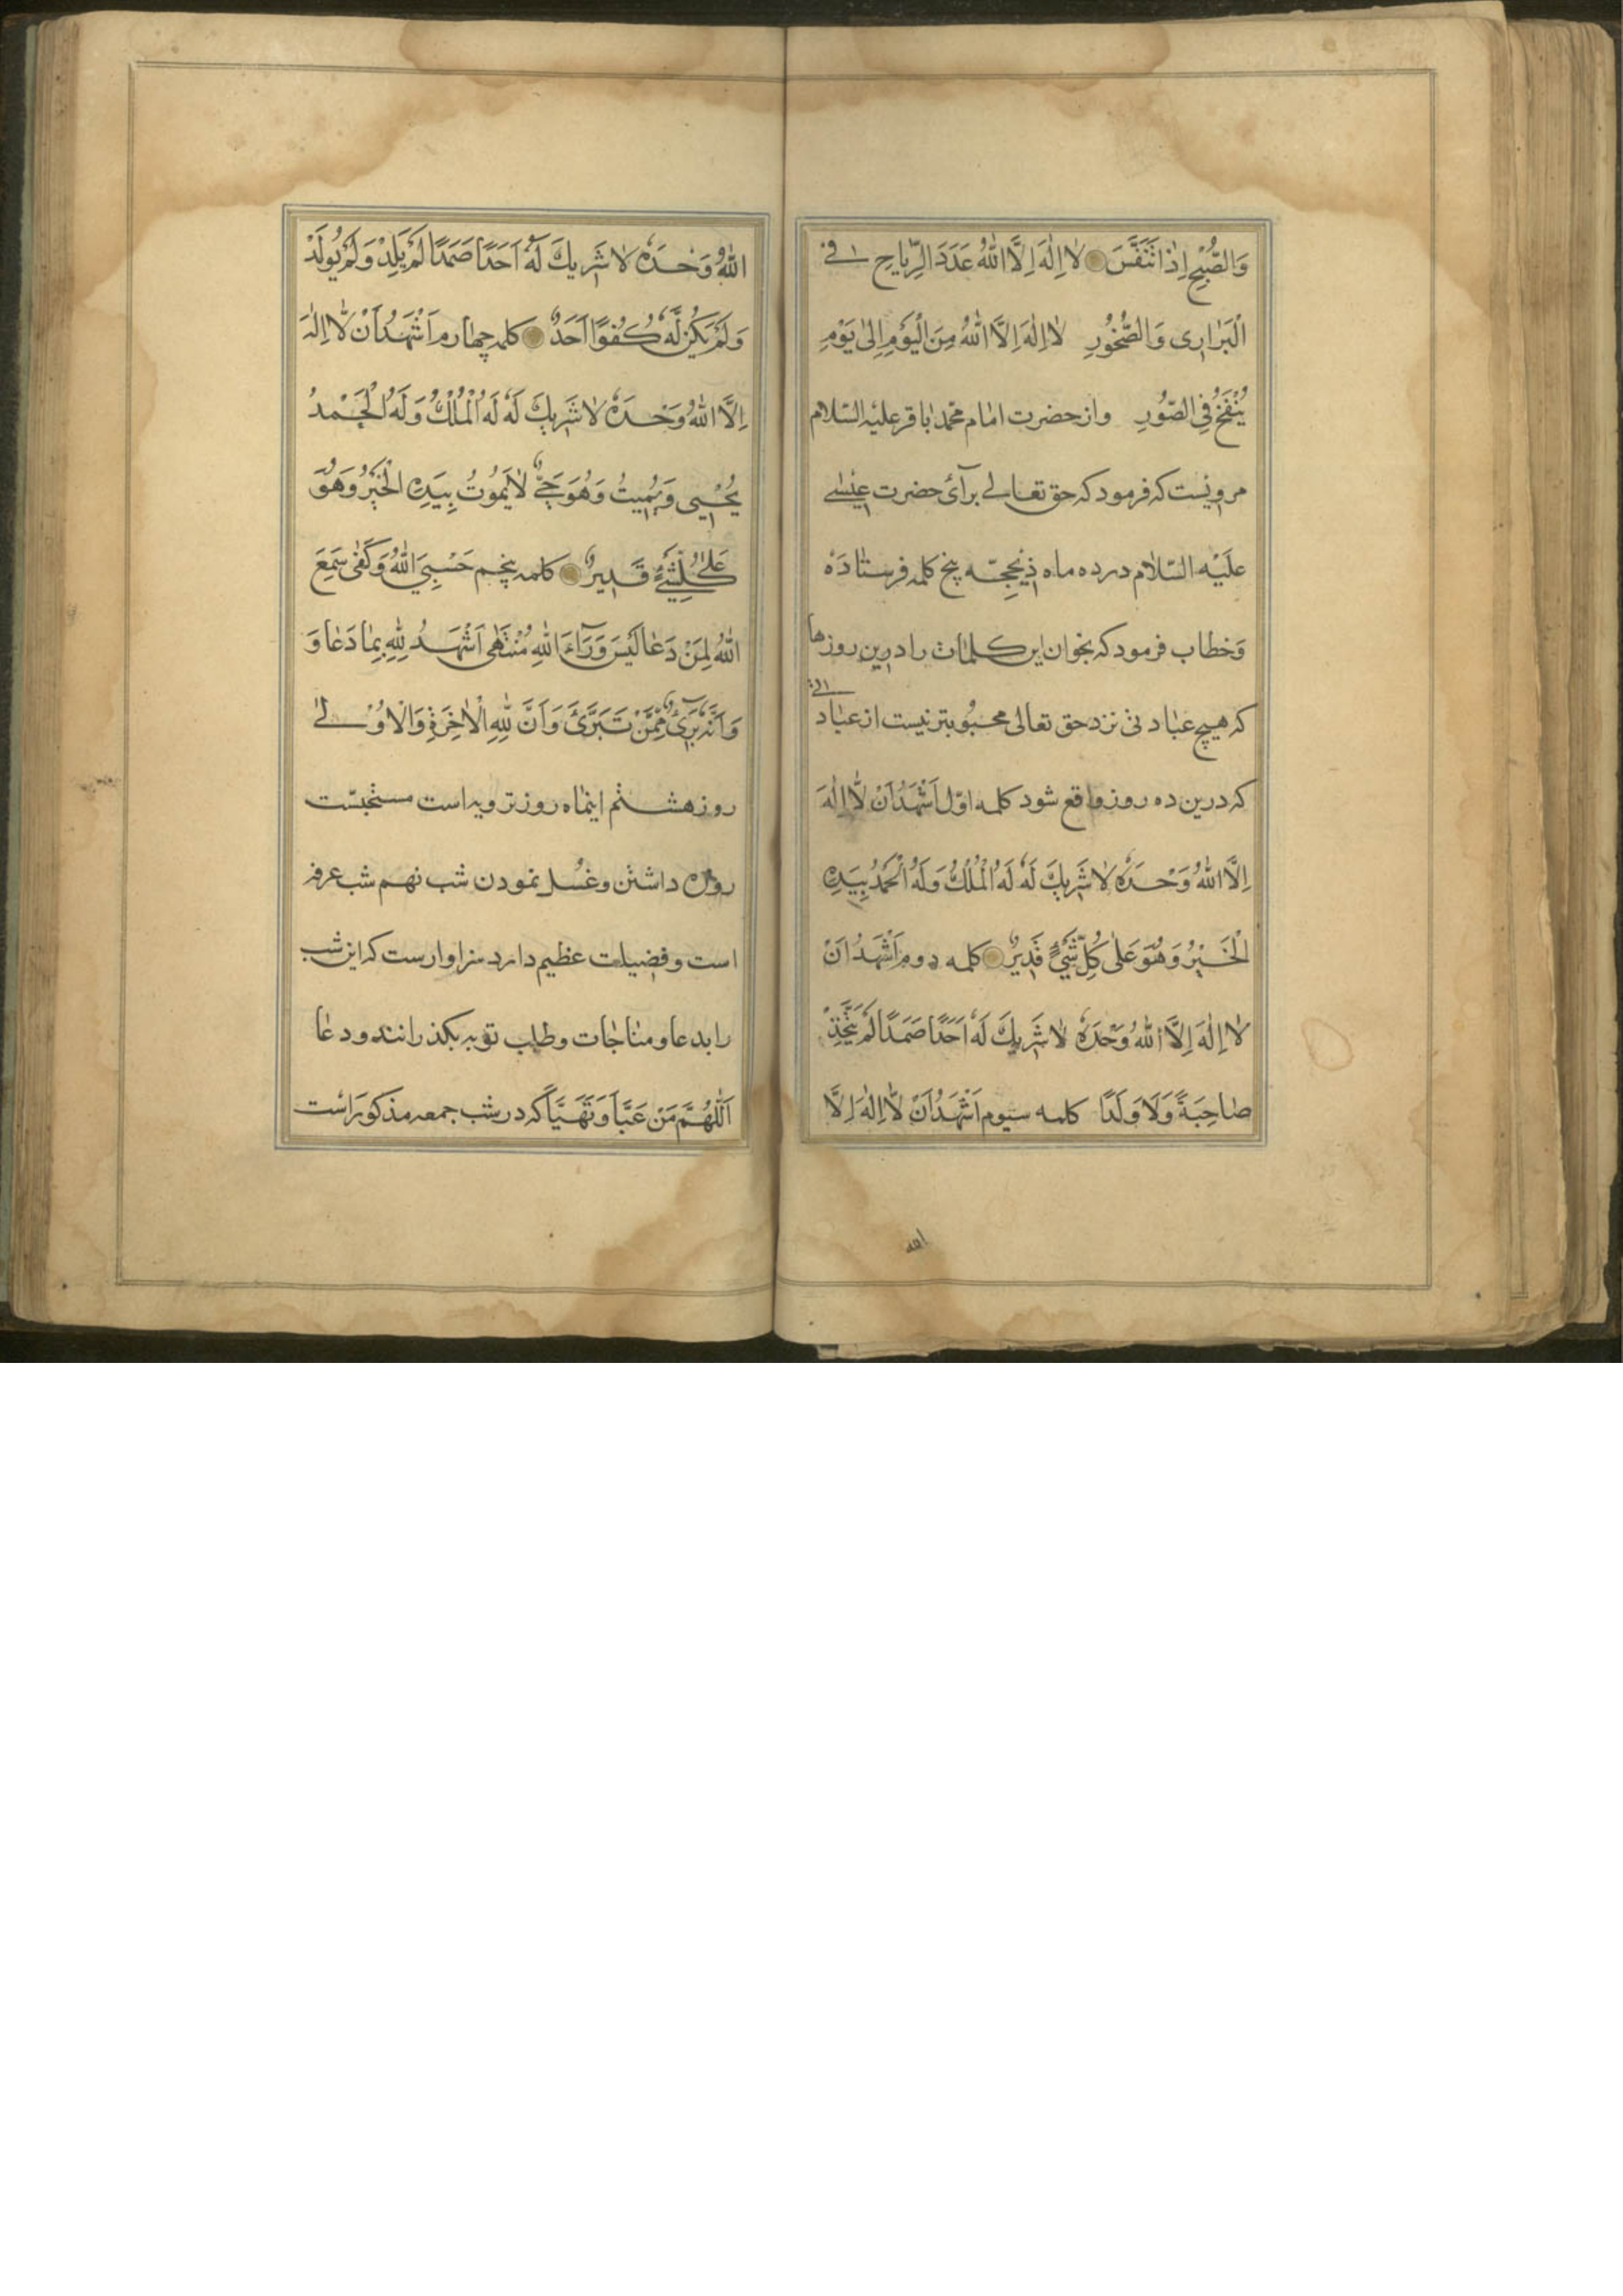 وَالصُّبْحِ اِذَا تَنَفَّسَ لَا اِلٰهَ اِلَّا اللهُ عَدَدَ الرِّيَاحِ فِى
الْبَرَارِى وَالصُّخُورِ لَا اِلٰهَ اِلَّا اللهُ مِنَ الْيَوْمِ اِلىٰ يَوْمِ
يُنْفَخُ فِى الصُّورِ واز حضرت امام محمد باقر عليه السّلام
مرويست كه فرمود كه حق تعالى براى حضرت عيسى
عليْه السّلام در ده ماه ذيحجّه پنج كلمه فرستاده
وخطاب فرمود كه بخوان اين كلمات را درين روزها
كه هيچ عبادتى نزد حق تعالى محبوبتر نيست از عبادتى
كه درين ده روز واقع شود كلمه اوّل اَشْهَدُ اَنْ لَّا اِلٰهَ
اِلَّا اللهُ وَحْدَهُ لَا شَرِيكَ لَهُ لَهُ الْمُلْكُ وَلَهُ الْحَمْدُ بِيَدِهِ
الْخَيْرُ وَهُوَ عَلىٰ كُلِّ شَيْءٍ قَدِيرٌ كلمه دوم اَشْهَدُ اَنْ
لَا اِلٰهَ اِلَّا اللهُ وَحْدَهُ لَا شَرِيكَ لَهُ اَحَدًا صَمَدًا لَمْ يَتَّخِذْ
صَاحِبَةً وَلَا وَلَدًا كلمه سيوم اَشْهَدُ اَنْ لَّا اِلٰهَ اِلَّا
الله
اللهُ وَحْدَهُ لَا شَرِيكَ لَهُ اَحَدًا صَمَدًا لَمْ يَلِدْ وَلَمْ يُولَدْ
وَلَمْ يَكُنْ لَّهُ كُفُوًا اَحَدٌ كلمه چهارم اَشْهَدُ اَنْ لَّا اِلٰهَ
اِلَّا اللهُ وَحْدَهُ لَا شَرِيكَ لَهُ لَهُ الْمُلْكُ وَلَهُ الْحَمْدُ
يُحْيِى وَيُمِيتُ وَهُوَ حَىٌّ لَا يَمُوتُ بِيَدِهِ الْخَيْرُ وَهُوَ
عَلىٰ كُلِّ شَيْءٍ قَدِيرٌ كلمه پنجم حَسْبِيَ اللهُ وَكَفٰى سَمِعَ
اللهُ لِمَنْ دَعَا لَيْسَ وَرَآءَ اللهِ مُنْتَهٰى اَشْهَدُ لِلّٰهِ بِمَا دَعَا وَ
وَاَنَّهُ بَرِىءٌ مِمَّنْ تَبَرَّىَ وَاَنَّ لِلّٰهِ الْاٰخِرَةِ وَالْاُوْلىٰ
روز هشتم اينماه روز ترويه است مستحبست
روزه داشتن وغسل نمودن شب نهم شب عرفه
است وفضيلت عظيم دارد سزاوارست كه اين شب
را بدعا ومناجات وطلب توبه بكذرانند ودعا
اَللّٰهُمَّ مَنْ تَعَبَّاَ وَتَهَيَّاَ كه در شب جمعه مذكور است